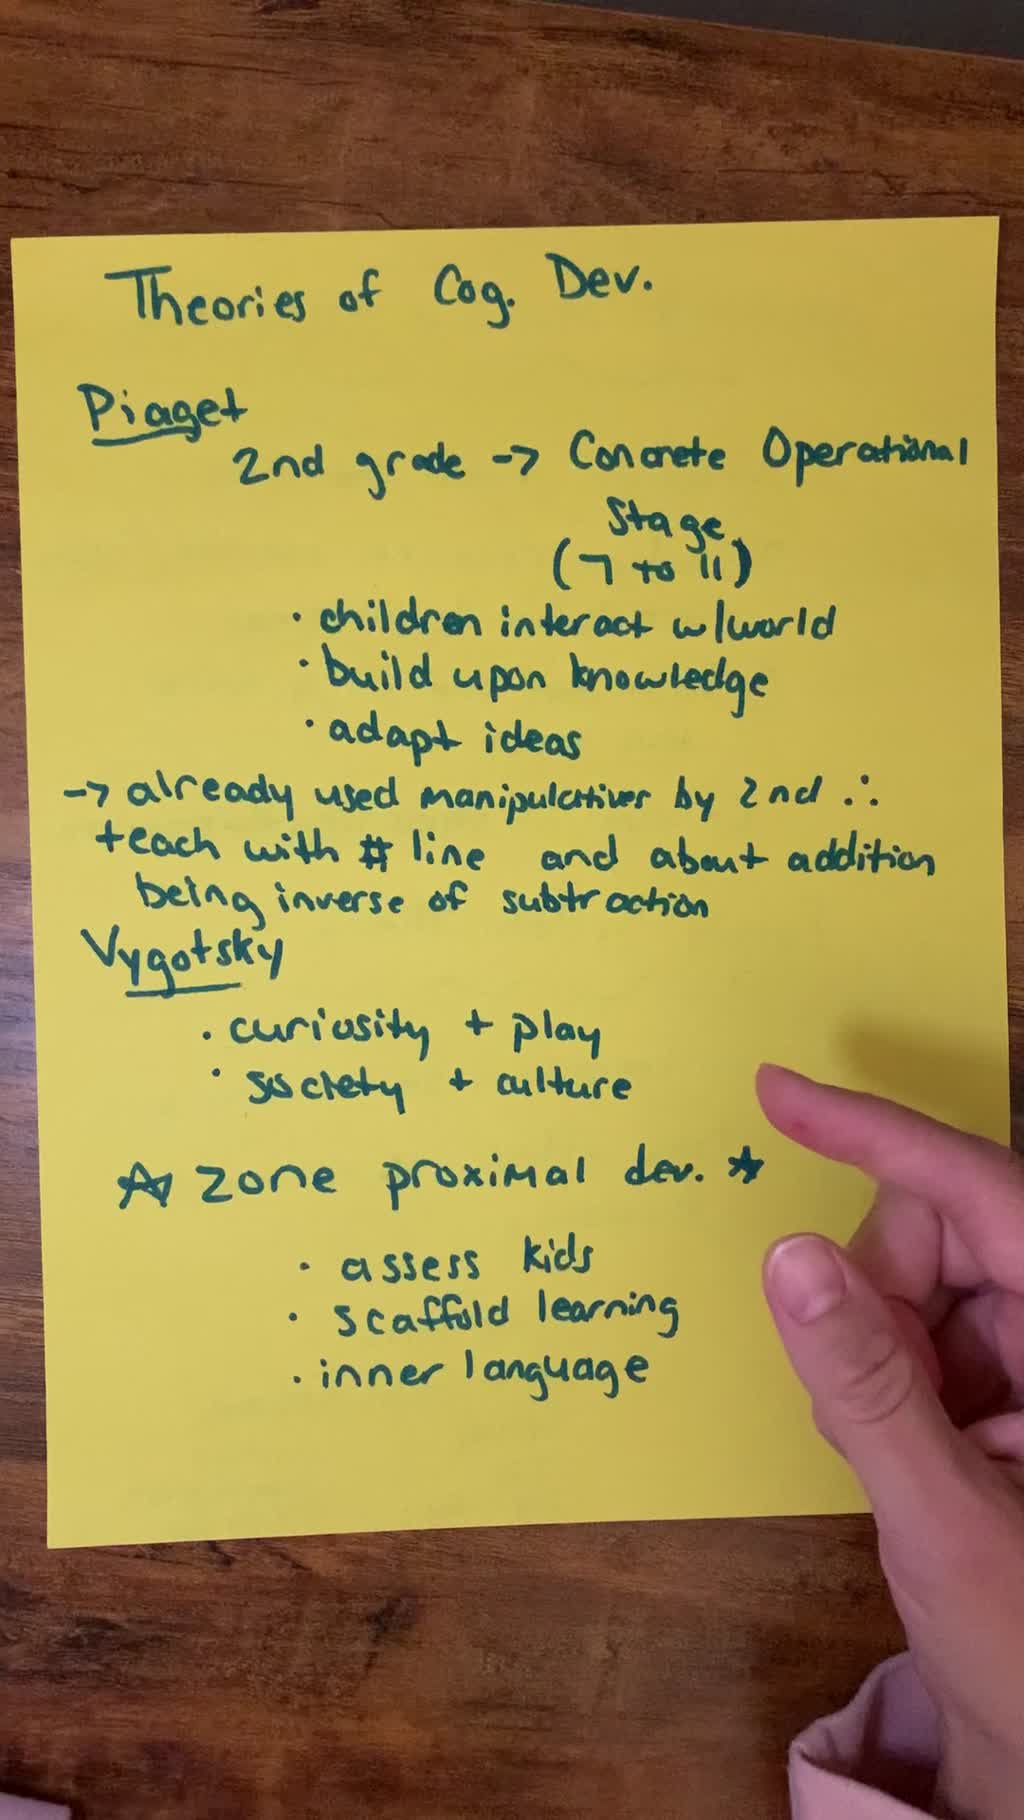 Theories of Cog. Dev.
Piaget
2nd grade -> Concrete Operational
Stage
(7 to 11)
· children interact w/world
· build upon knowledge
· adapt ideas
-> already used manipulatives by 2nd ∴
teach with # line and about addition
being inverse of subtraction
Vygotsky
· curiosity + play
· society + culture
☆ zone proximal dev. ☆
· assess kids
· scaffold learning
· inner language